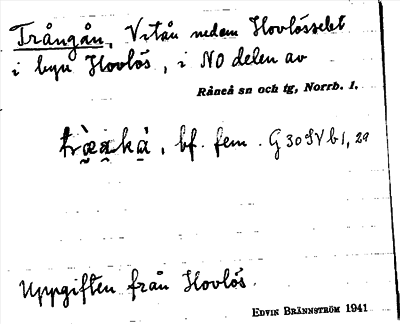 Trångån, Vitån nedom Hovlösselet
i byn Hovlös, i NO delen av
Råneå sn och tg, Norrb. l.
bf. fem. G30SV b1, 29
Uppgiften från Hovlös.
EDVIN BRÄNNSTRÖM 1941